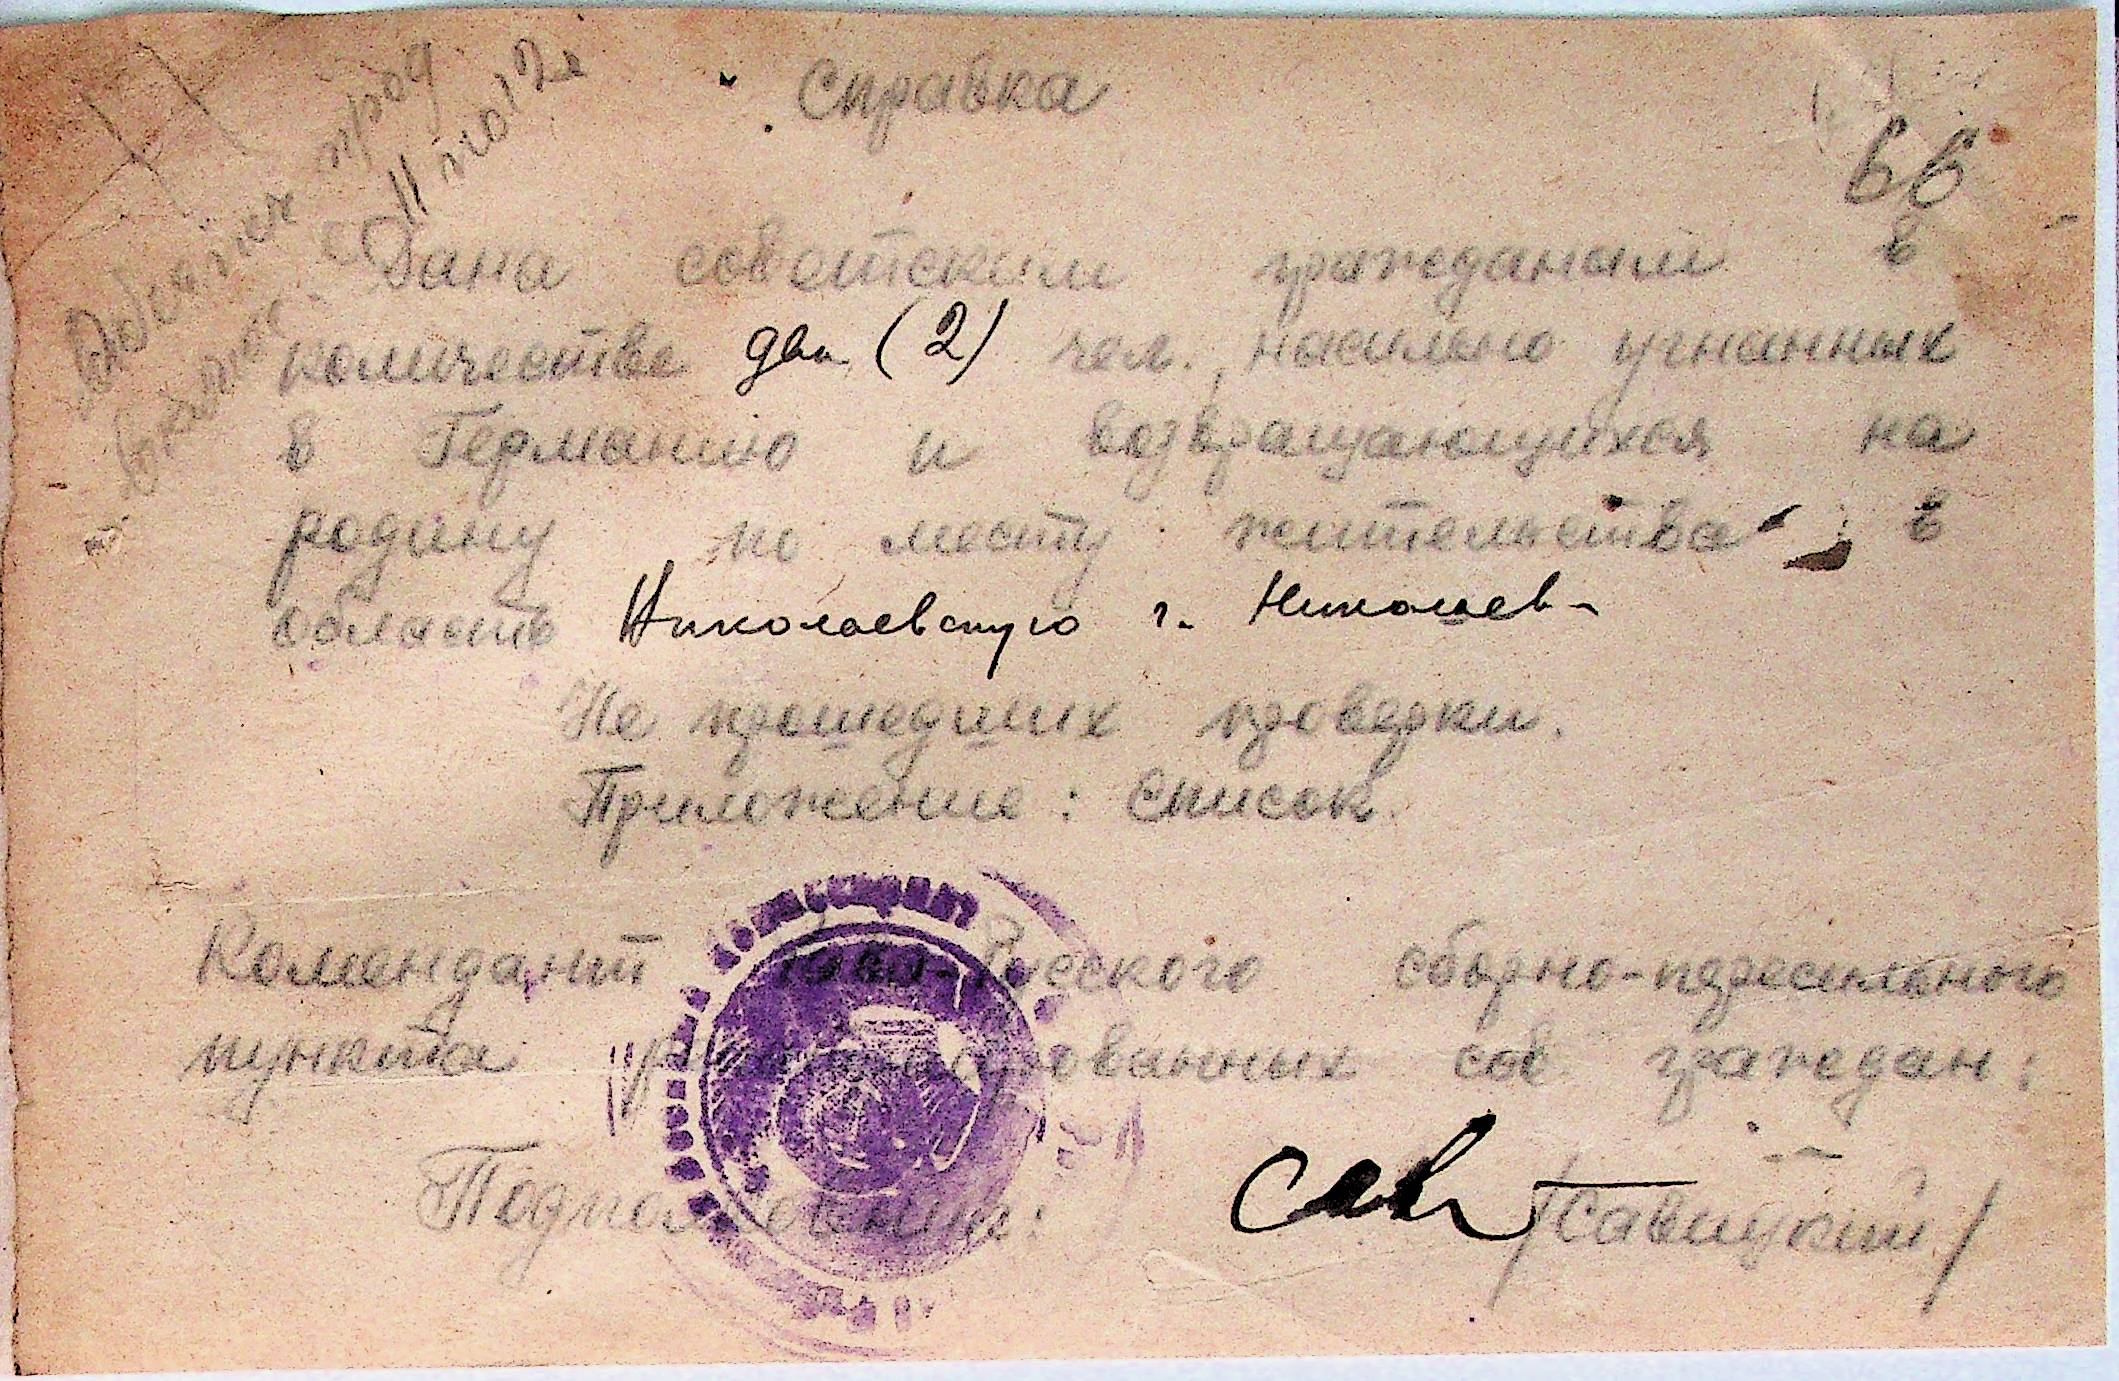 Справка
66
Дана советским гражданам в
количестве два (2) чел., насильно угнанных
в Германию и возвращающихся на
родину по месту жительства, в
область Николаевскую г. Николаев
Не прошедших проверки.
Приложение: список.
Комендант Рава-Русского сборно-пересыльного
пункта репатриированных сов. граждан:
Подполковник: /Савицкий/